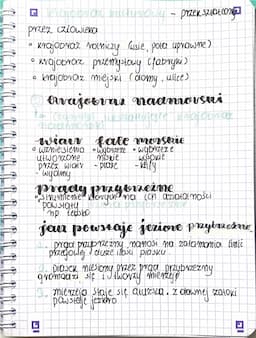 krajobraz kulturowy – przekształcony
przez człowieka
• krajobraz rolniczy (wsie, pola uprawne)
• krajobraz przemysłowy (fabryki)
• krajobraz miejski (domy, ulice)
krajobraz nadmorski
krajobraz
wiatr fale morskie
• wzniesienia • wybrzeże • wybrzeże
utworzone niskie wysokie
przez wiatr - plaże - klify
- wydmy
prądy przybrzeżne
na ich działalności
powstały
np. Łebsko
jak powstaje jezioro przybrzeżne
1. prąd przybrzeżny nanosi na załamania linii
duże ilości piasku
2. piasek niesiony przez prąd przybrzeżny
gromadzi się i tworzy mierzeję
3. mierzeja staje się dłuższa, z dawnej zatoki
powstaje jezioro